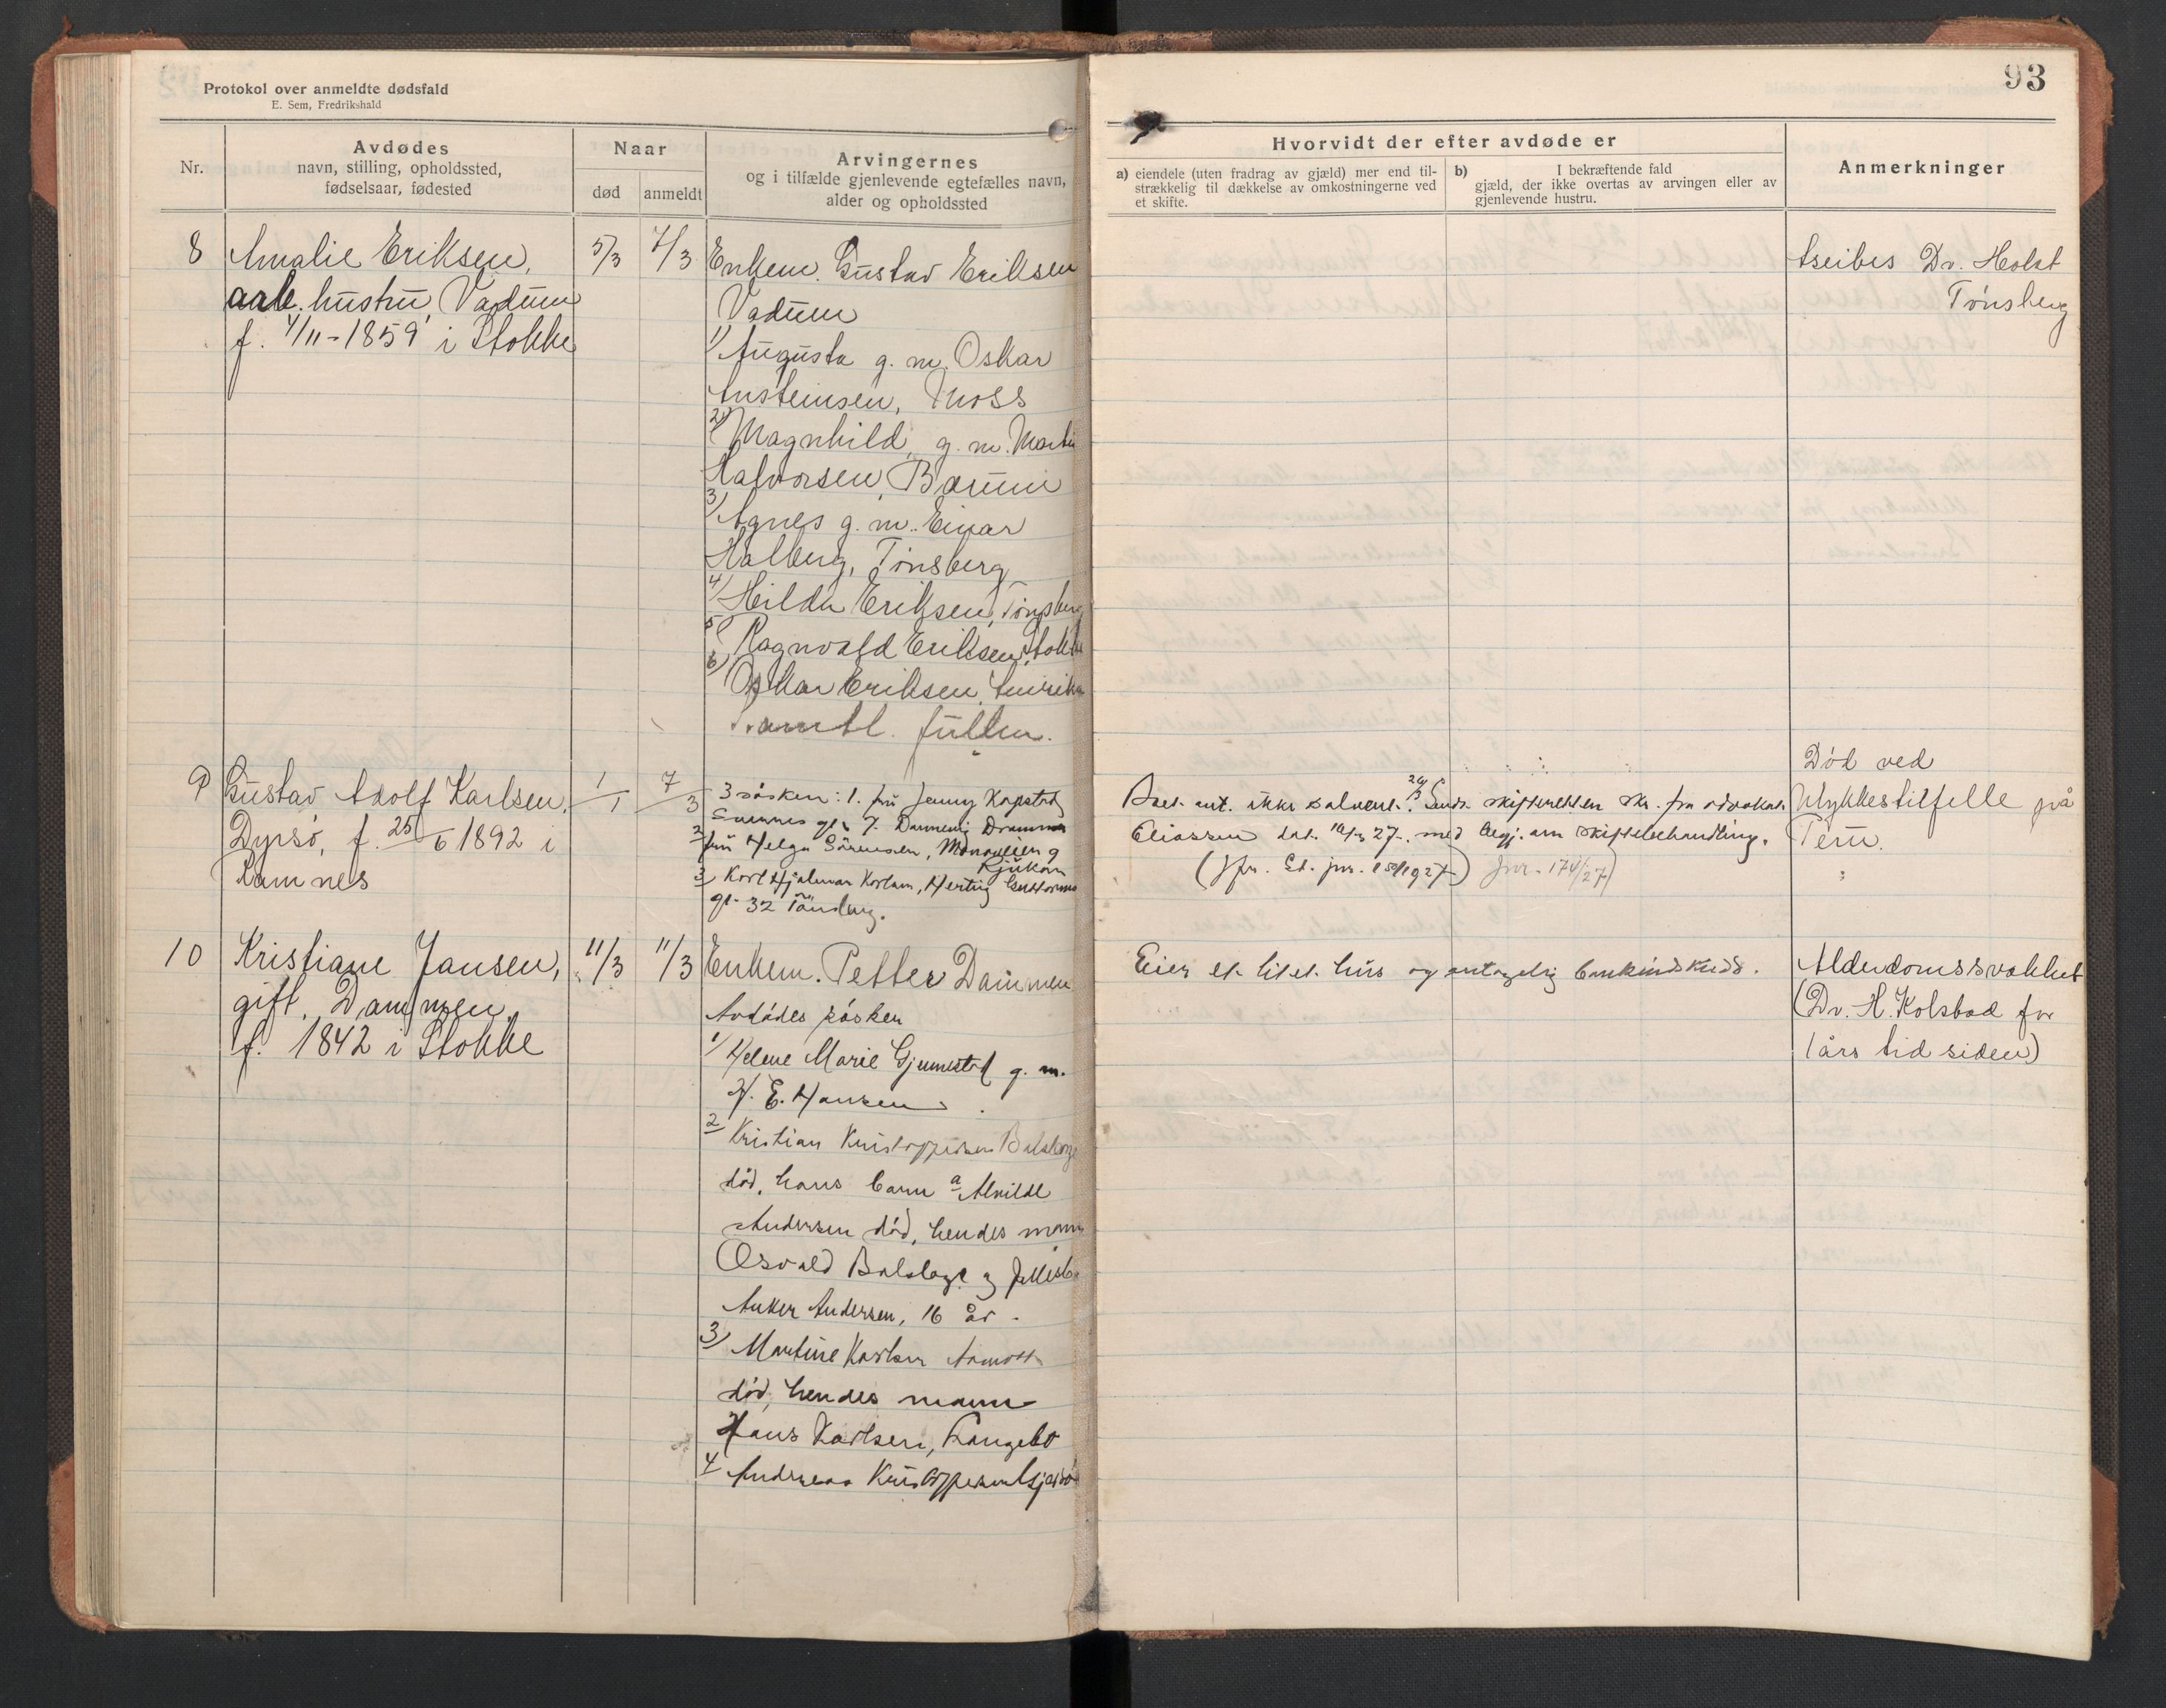 Protokol over anmeldte dødsfald
E. Sem, Fredrikshald
93
Nr.
Avdødes
navn, stilling, opholdssted,
fødselsaar, fødested
Naar
død
anmeldt
Arvingernes
og i tilfælde gjenlevende egtefælles navn,
alder og opholdssted
Hvorvidt der efter avdøde er
a) eiendele (uten fradrag av gjæld) mer end til-
strækkelig til dækkelse av omkostningerne ved
et skifte.
b) I bekræftende fald
gjæld, der ikke overtas av arvingen eller av
gjenlevende hustru.
Anmerkninger
8
Amalie Eriksen,
arb. hustru, Vadum
f. 4/11-1859 i Stokke
5/3
7/3
Enkem. Gustav Eriksen
Vadum
1) Augusta g. m. Oskar
Ansteinsen, Moss
2) Magnhild, g. m. Martin
Halvorsen, Bærum
3) Agnes g. m. Einar
Halberg, Tønsberg
4) Hilda Eriksen, Tønsberg
5) Ragnvald Eriksen, Stokke
6) Oskar Eriksen, Amerika
samtl. fullm.
Dr. Holst
Tønsberg
9
Gustav Adolf Karlsen,
Dyrsø, f. 25/6 1892 i
Ramnes
1/1
7/3
3 søsken: 1. fru Jenny Kopstad
gt. 7. Danmenig Drammen
2 fru Helga Sørensen,
Rjukan
3 Karl Hjalmar Karlsen, Hertug Guttorms
gt. 32 Tønsberg.
Boet ant. ikke solvent. 29/3 Sendt skifteretten skr. fra advokat
Eliassen dat. 16/3 27 med begj. om skiftebehandling.
(Jfr. Ed. jnr. 158/1927) Jnr. 174/27
Død ved
Ulykkestilfelle på
Peru.
10
Kristiane Jansen,
gift, Dammen,
f. 1842 i Stokke
11/3
11/3
Enkem. Petter Dammen
Avdødes søsken
1) Helene Marie Gjennestad g. m.
H. E. Hansen
2 Kristian Kristoffersen
død, hans barn a Alvilde
Andersen død, hendes mann
Osvald
Anker Andersen, 16 år.
3) Martine Karlsen
død, hendes mann
Hans Karlsen, Langebo
4 Andreas Kristoffersen
Eier et litet hus og antagelig bankindskudd.
Alderdomssvakhet
(Dr. H. Kolstad for
1 års tid siden)